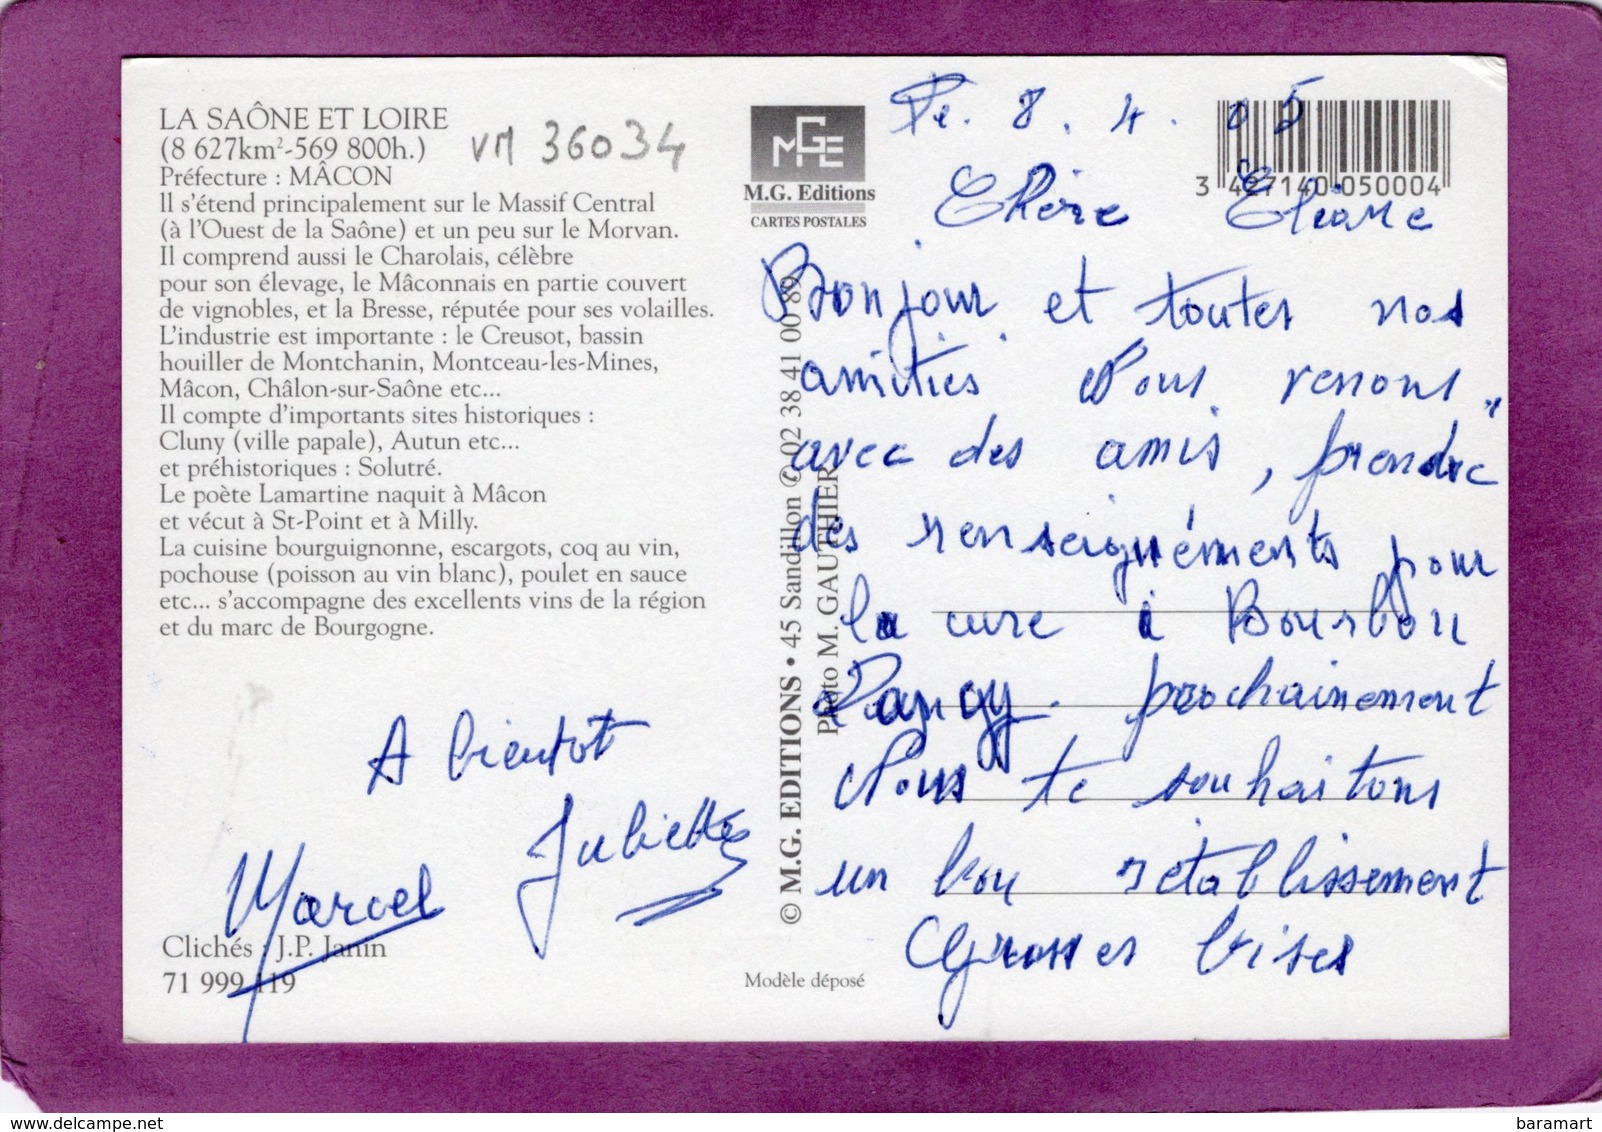 LA SAÔNE ET LOIRE
(8 627km²-569 800h.)
VM 36034
Préfecture : MÂCON
Il s'étend principalement sur le Massif Central
(à l'Ouest de la Saône) et un peu sur le Morvan.
Il comprend aussi le Charolais, célèbre
pour son élevage, le Mâconnais en partie couvert
de vignobles, et la Bresse, réputée pour ses volailles.
L'industrie est importante : le Creusot, bassin
houiller de Montchanin, Montceau-les-Mines,
Mâcon, Châlon-sur-Saône etc...
Il compte d'importants sites historiques :
Cluny (ville papale), Autun etc...
et préhistoriques : Solutré.
Le poète Lamartine naquit à Mâcon
et vécut à St-Point et à Milly.
La cuisine bourguignonne, escargots, coq au vin,
pochouse (poisson au vin blanc), poulet en sauce
etc... s'accompagne des excellents vins de la région
et du marc de Bourgogne.
A bientot
Juliette
Marcel
Clichés : J.P. Janin
71 999 119
MGE
M.G. Editions
CARTES POSTALES
© M.G. EDITIONS • 45 Sandillon ✆ 02 38 41 00 89
Photo M. GAUTHIER
Modèle déposé
3 427140 050004
Le. 8. 4. 05
Chère Eliane
Bonjour et toutes nos
amitiés Nous venons,
avec des amis, prendre
des renseignéments pour
la cure à Bourbon
Lancy. prochainement
Nous te souhaitons
un bon rétablissement
Grosses bises
baramart